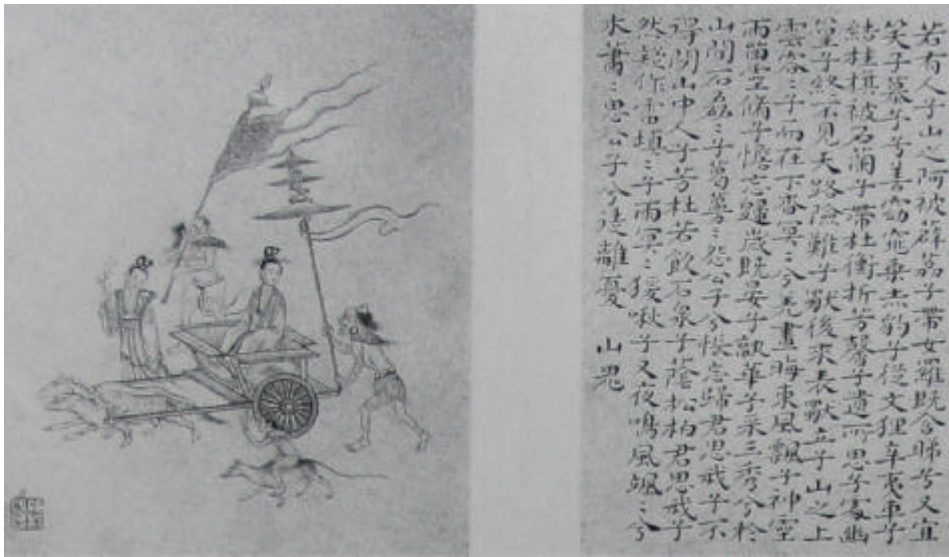 若有人兮山之阿被薜荔兮帶女羅既含睇兮又宜
笑子慕予兮善窈窕乘赤豹兮從文狸辛夷車兮
結桂旗被石蘭兮帶杜衡折芳馨兮遺所思予處幽
篁兮終不見天路險難兮獨後來表獨立兮山之上
雲容〻兮而在下杳冥〻兮羌晝晦東風飄兮神靈
雨留靈脩兮憺忘歸歲既晏兮孰華予采三秀兮於
山間石磊〻兮葛蔓〻怨公子兮悵忘歸君思我兮不
得閒山中人兮芳杜若飲石泉兮蔭松柏君思我兮
然疑作雷填〻兮雨冥〻猨啾兮又夜鳴風颯〻兮
木蕭〻思公子兮徒離憂　山鬼